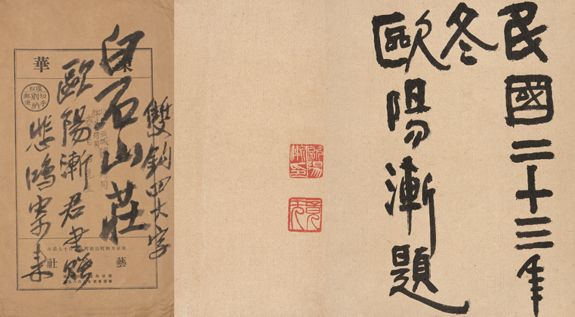 民國二十三年
冬
歐陽漸題
雙鉤四大字
白石山莊
歐陽漸君書贈
悲鴻寄來
華
藝
社